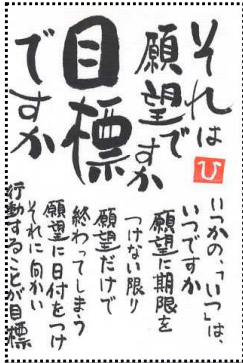 それは
願望ですか
目標
ですか
ひ
いつかの、「いつ」は、
いつですか
願望に期限を
つけない限り
願望だけで
終わってしまう
願望に日付をつけ
それに向かい
行動することが目標